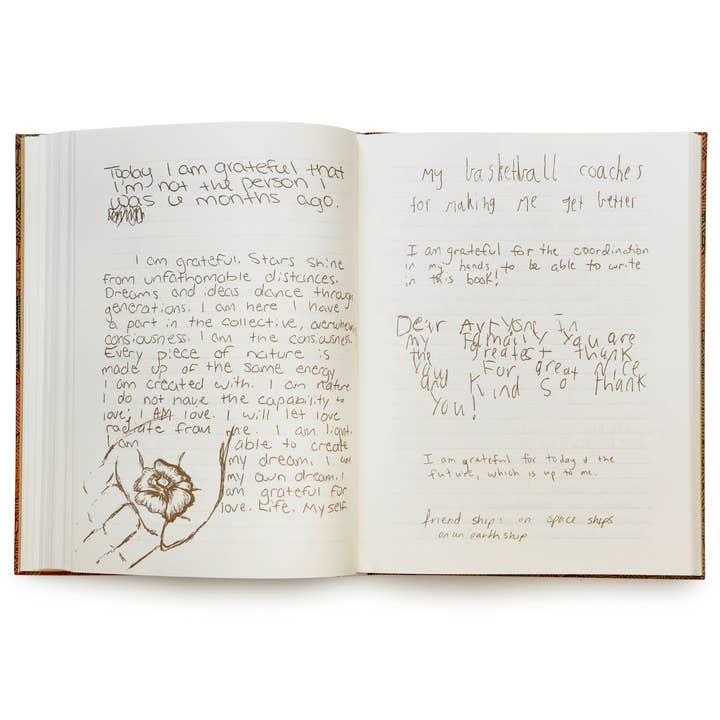 Today I am grateful that
I'm not the person I
was 6 months ago.
I am grateful. Stars shine
from unfathomable distances.
Dreams and ideas dance through
generations. I am here I have
a part in the collective, overwhelming
consiousness. I am the consiousness.
Every piece of nature is
made up of the same energy
I am created with. I am nature
I do not have the capability to
love; I AM love. I will let love
radiate from me. I am light.
I am able to create
my dream. I am
my own dream. I
am grateful for
love. Life. Myself
my basketball coaches
for making me get better
I am grateful for the coordination
in my hands to be able to write
in this book!
Dear in
my family you are
the greatest thank
you For great nice
and kind so thank
you!
I am grateful for today & the
future, which is up to me.
friend ships: on space ships
on an earth ship